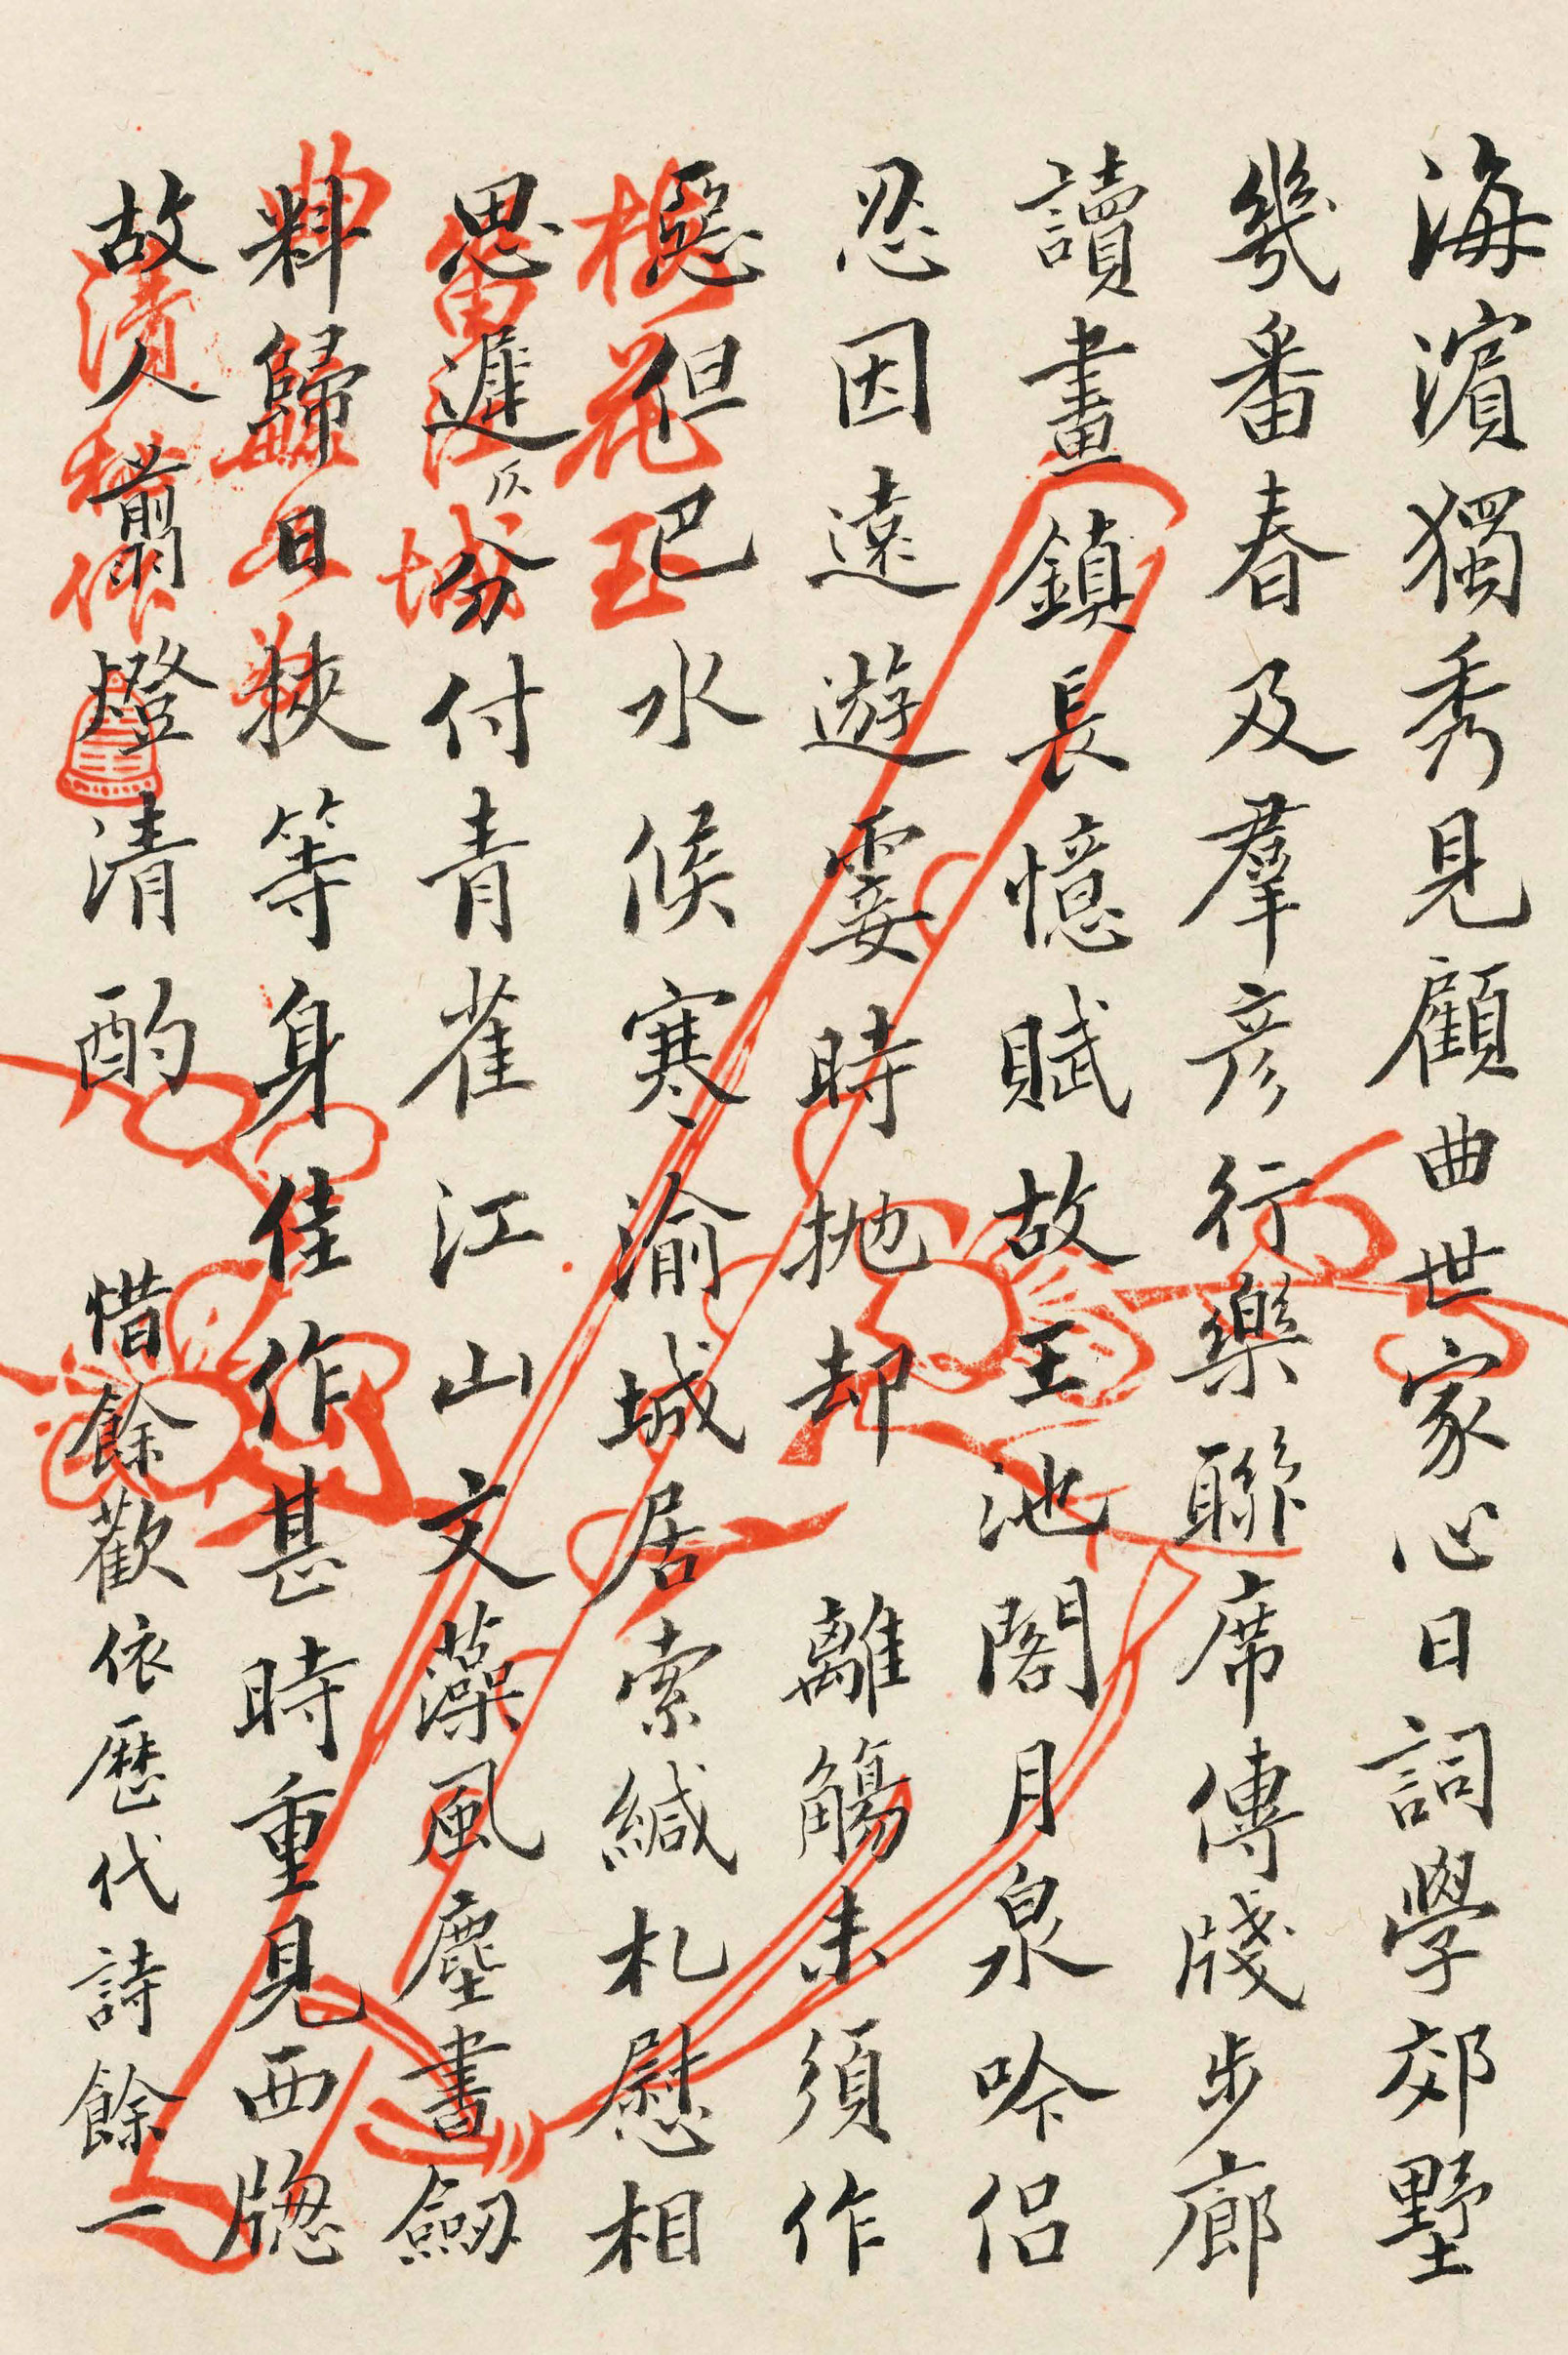 海濵獨秀見顧曲世家心日詞學郊墅
幾番春及羣彦行樂聯席傳牋步廊
讀畫鎮長憶賦故王池閣月泉吟侣
忍因遠遊霎時抛却　離觴未須作
惡但巴水候寒渝城居索緘札慰相
思遲仄分付青雀江山文藻風塵書劒
料歸日狹等身佳作甚時重見西牕
故人翦燈清酌　惜餘歡依歷代詩餘一
梅花玉
雷江城